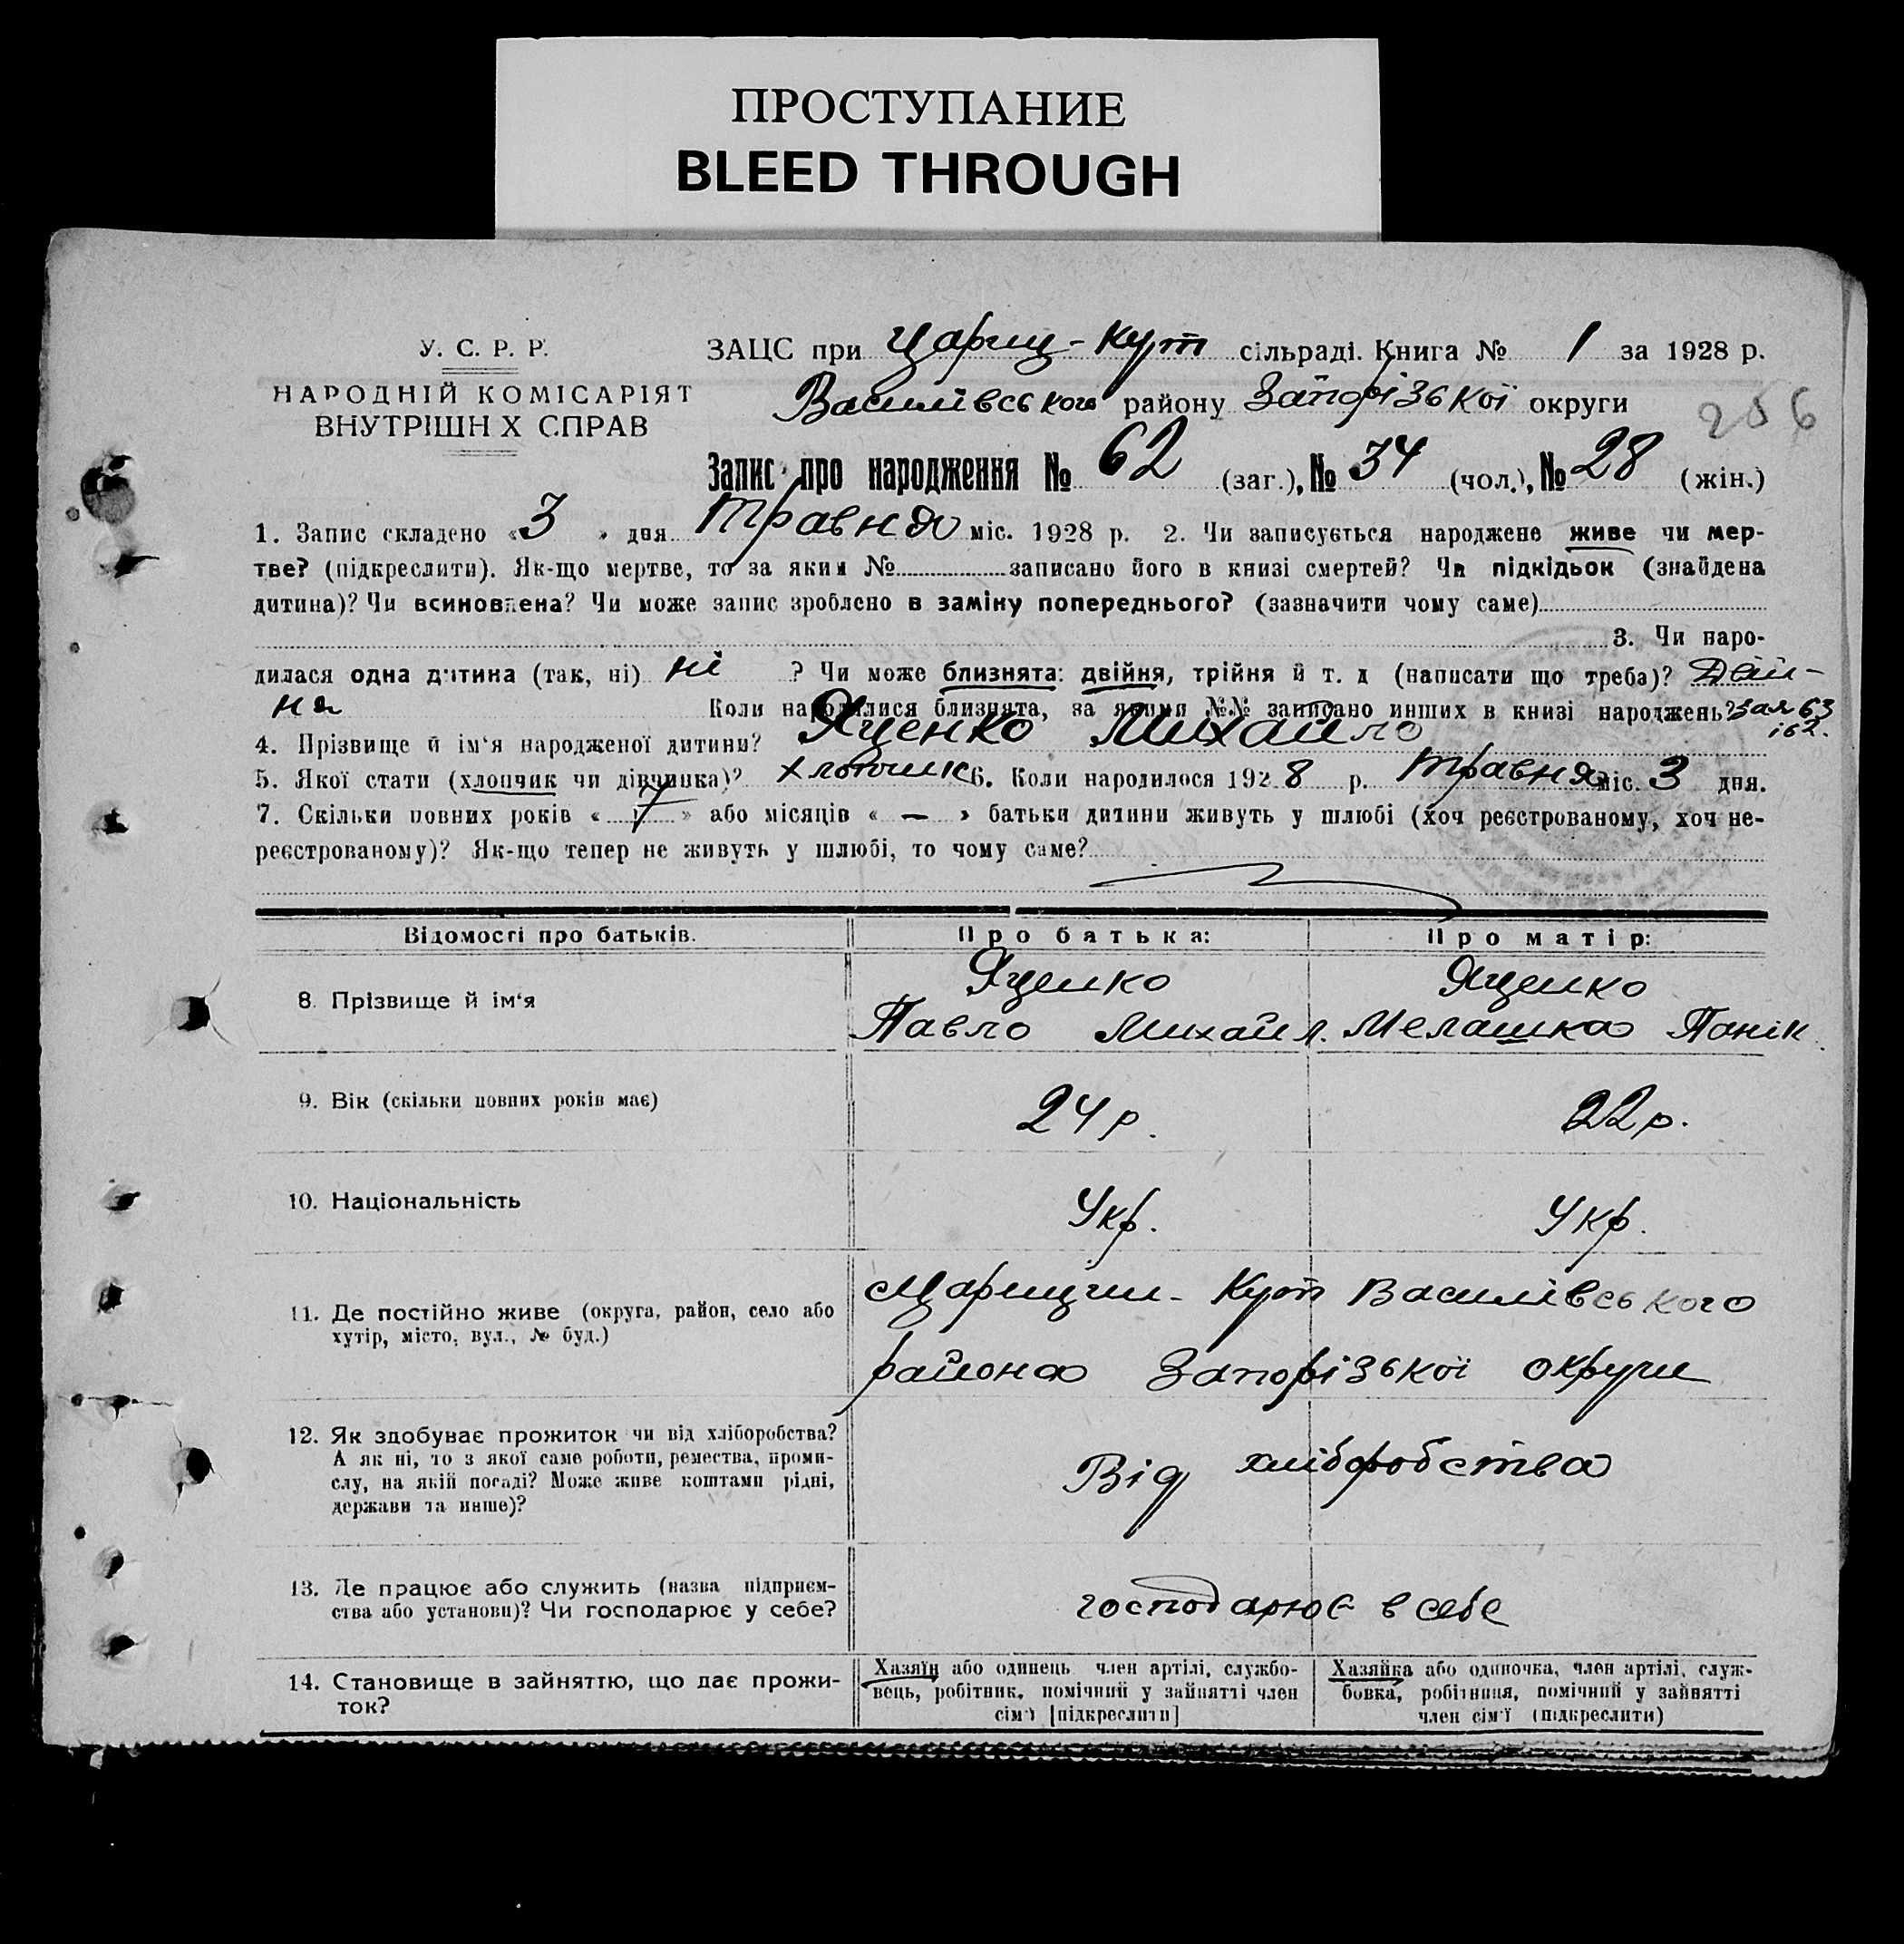 ПРОСТУПАНИЕ
BLEED THROUGH
У. С. Р. Р.
НАРОДНІЙ КОМІСАРІЯТ
ВНУТРІШН Х СПРАВ
ЗАЦС при Цариц-Кут сільраді. Книга № 1 за 1928 р.
Василівського району Запорізької округи
Запис про народження № 62 (заг.), № 34 (чол.), № 28 (жін.)
1. Запис складено «3» дня Травня міс. 1928 р. 2. Чи записується народжене живе чи мер-
тве? (підкреслити). Як-що мертве, то за яким № записано його в книзі смертей? Чи підкідьок (знайдена
дитина)? Чи всиновлена? Чи може запис зроблено в заміну попереднього? (зазначити чому саме)
3. Чи наро-
дилася одна дитина (так, ні) ні ? Чи може близнята: двійня, трійня й т. д (написати що треба)? Двій-
ня Коли народилися близнята, за якими №№ записано инших в книзі народжень? за № 63
і 62.
4. Прізвище й ім'я народженої дитини? Яценко Михайло
5. Якої стати (хлопчик чи дівчинка)? хлопчик 6. Коли народилося 1928 р. Травня міс. 3 дня.
7. Скільки повних років « » або місяців « — » батьки дитини живуть у шлюбі (хоч реєстрованому, хоч не-
реєстрованому)? Як-що тепер не живуть у шлюбі, то чому саме?
Відомості про батьків. Про батька: Про матір:
8. Прізвище й ім'я Яценко Павло Михайл. Яценко Мелашка Панік
9. Вік (скільки повних років має) 24 р. 22 р.
10. Національність Укр. Укр.
11. Де постійно живе (округа, район, село або Царицин-Кут Василівського
хутір, місто, вул., № буд.) района Запорізької округи
12. Як здобуває прожиток чи від хліборобства?
А як ні, то з якої саме роботи, ремества, проми- Від хліборобства
слу, на якій посаді? Може живе коштами рідні,
держави та инше)?
13. Де працює або служить (назва підприєм-
ства або установи)? Чи господарює у себе? господарює в себе
14. Становище в зайняттю, що дає прожи-
ток?
Хазяїн або одинець, член артілі, службо-
вець, робітник, помічний у зайнятті член
сім'ї [підкреслити]
Хазяйка або одиночка, член артілі, служ-
бовка, робітниця, помічний у зайнятті
член сім'ї (підкреслити)